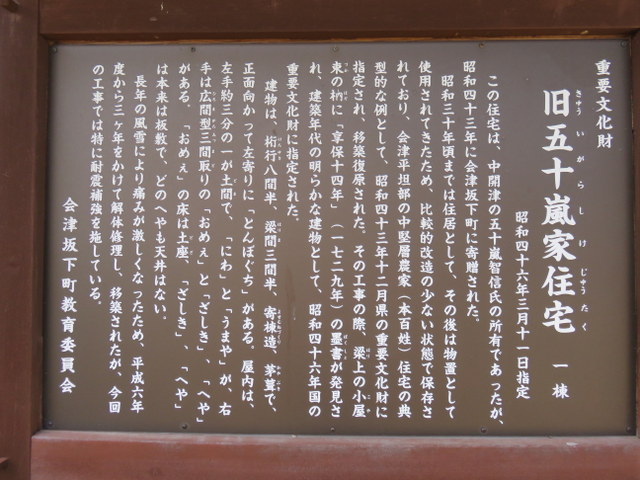 重要文化財
旧五十嵐家住宅 一棟
きゅう い が ら し け じゅう たく
昭和四十六年三月十一日指定
この住宅は、中開津の五十嵐智信氏の所有であったが、
昭和四十三年に会津坂下町に寄贈された。
昭和三十年頃までは住居として、その後は物置として
使用されてきたため、比較的改造の少ない状態で保存さ
れており、会津平坦部の中堅層農家（本百姓）住宅の典
型的な例として、昭和四十三年十二月県の重要文化財に
指定され、移築復原された。その工事の際、梁上の小屋
束の枘に「享保十四年」（一七二九年）の墨書が発見さ
れ、建築年代の明らかな建物として、昭和四十六年国の
重要文化財に指定された。
建物は、桁行八間半、梁間三間半、寄棟造、茅葺で、
正面向かって左寄りに「とんぼぐち」がある。屋内は、
左手約三分の一が土間で、「にわ」と「うまや」が、右
手は広間型三間取りの「おめえ」と「ざしき」、「へや」
がある。「おめえ」の床は土座、「ざしき」、「へや」
は本来は板敷で、どのへやも天井はない。
長年の風雪により痛みが激しくなったため、平成六年
度から三ヶ年をかけて解体修理し、移築されたが、今回
の工事では特に耐震補強を施している。
会津坂下町教育委員会